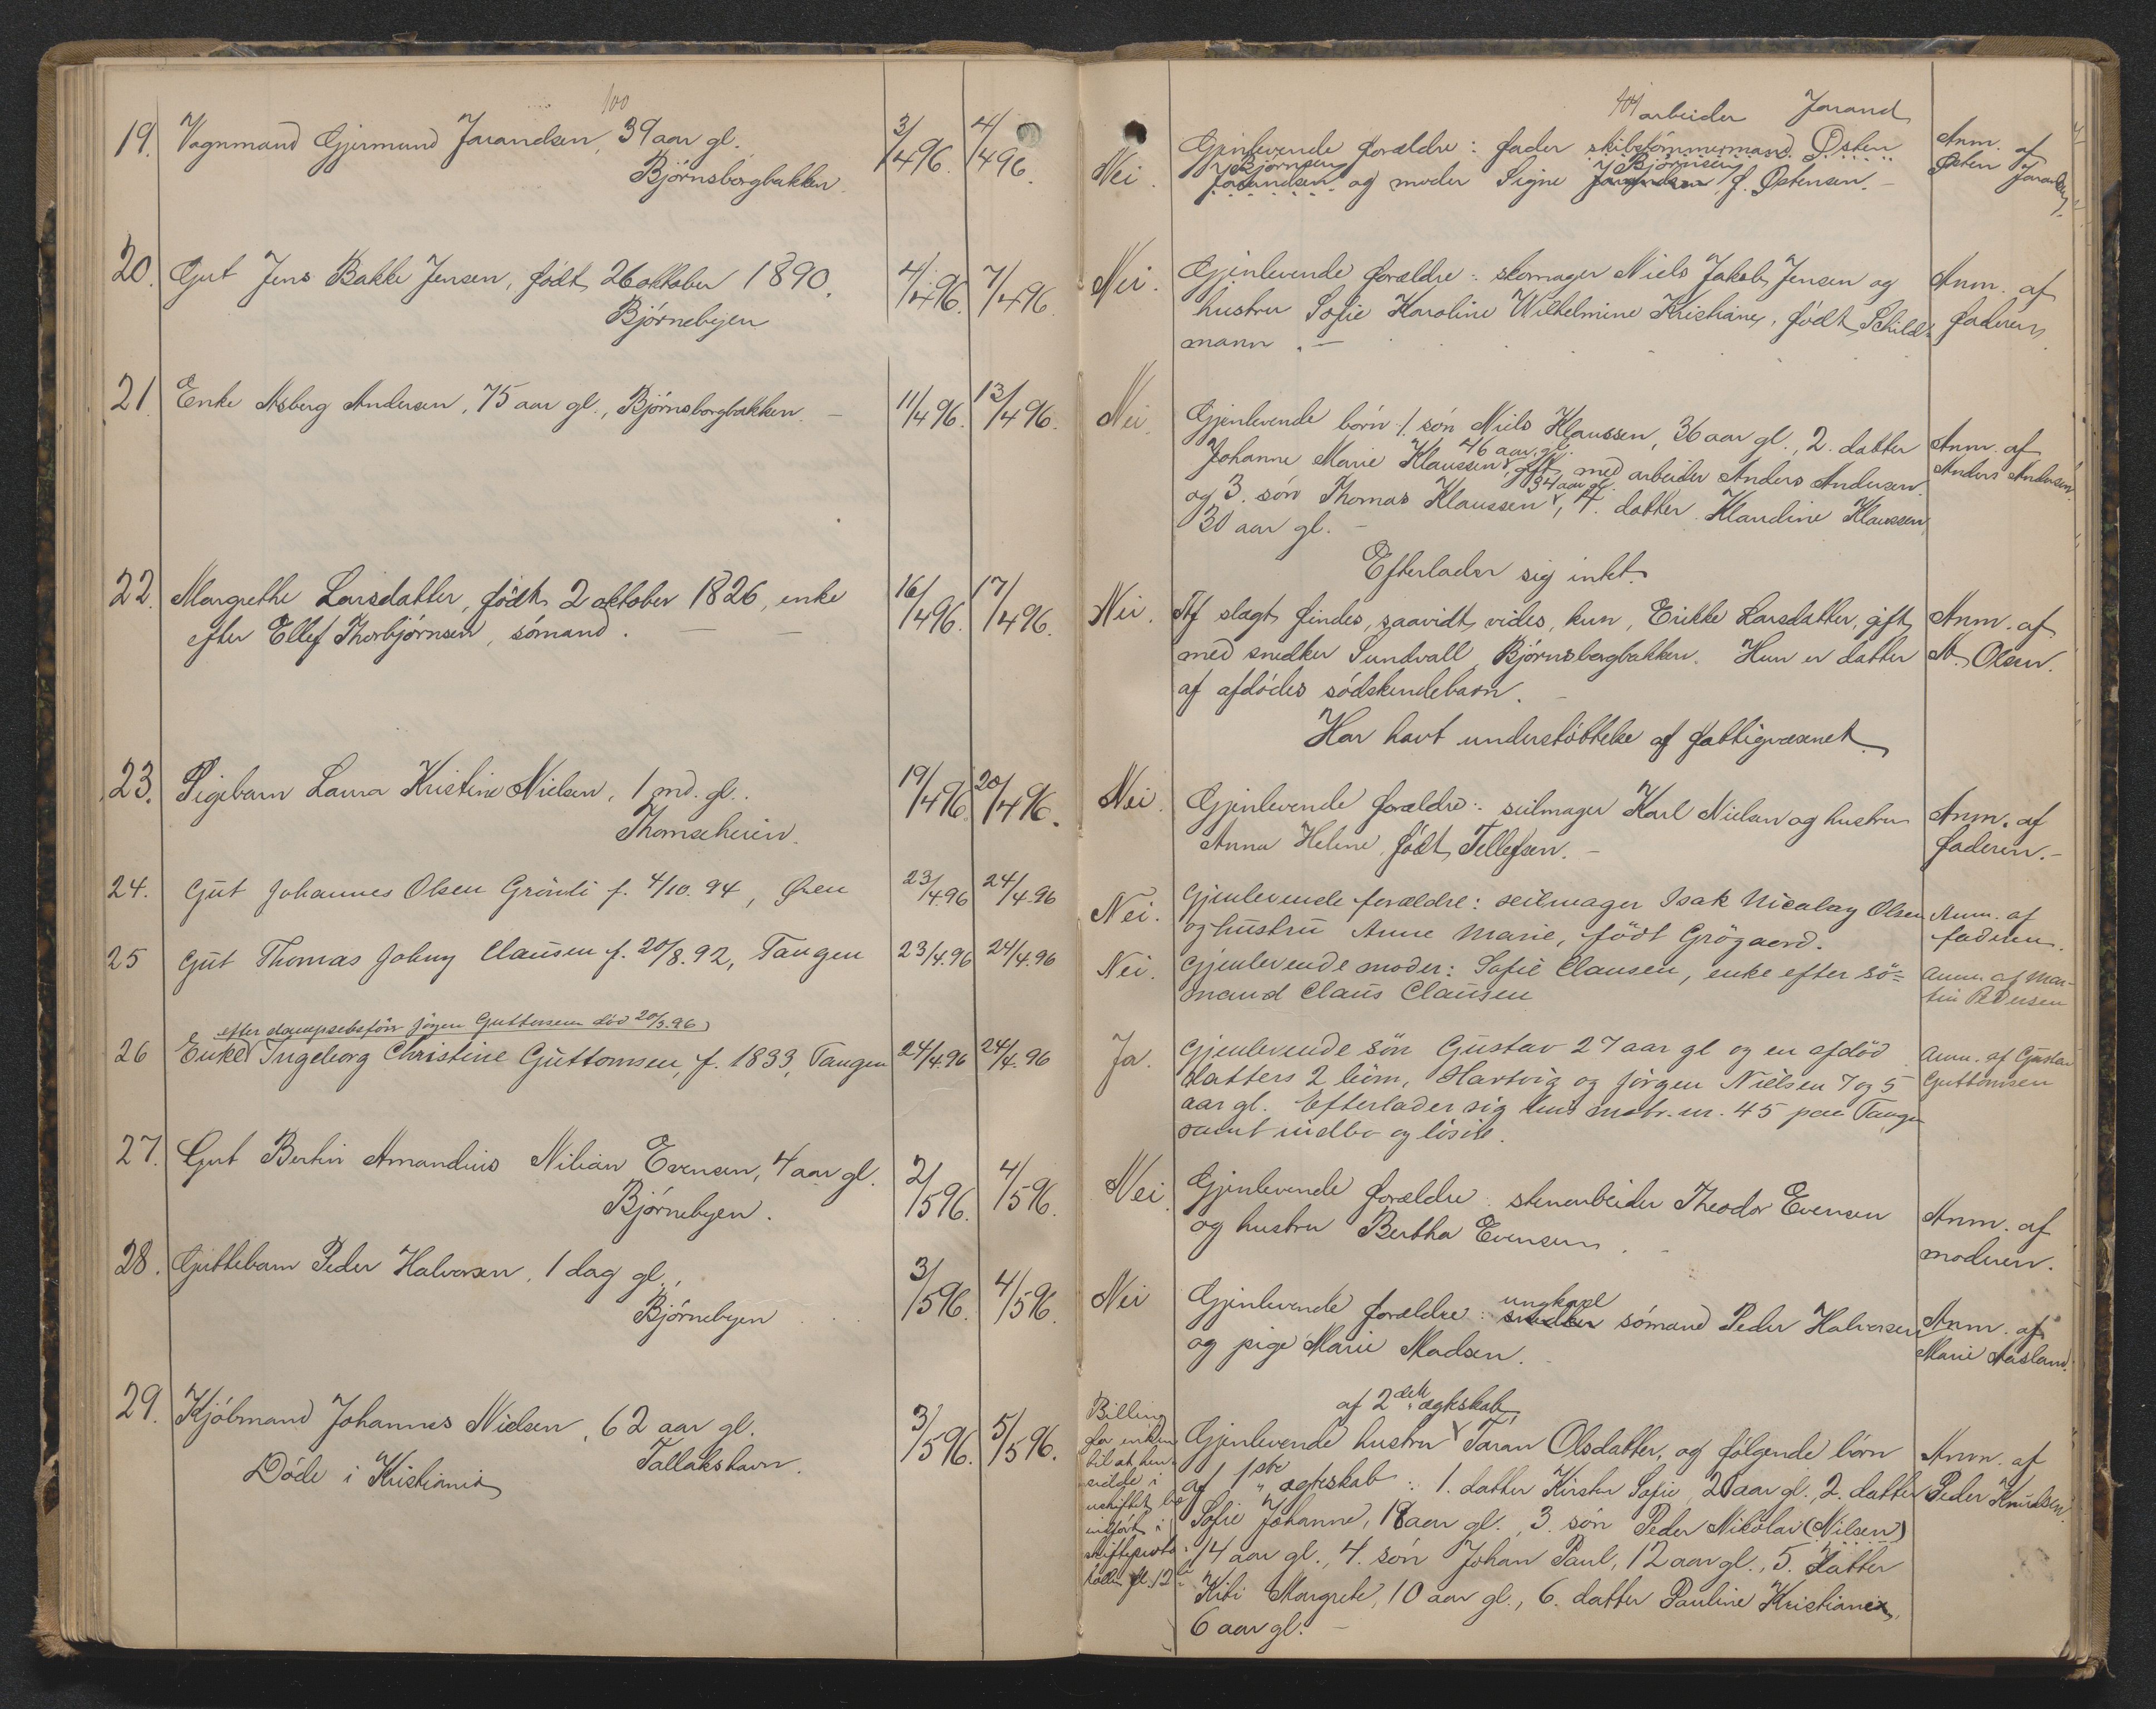 100
19. Vognmand Gjermund Jorandsen, 39 aar gl. 3/4 96. 4/4 96.
Bjørnsborgbakken.
20. Gut Jens Bakke Jensen, født 26 oktober 1890. 4/4 96. 7/4 96.
Bjørnebyen
21. Enke Asberg Andersen, 75 aar gl., Bjørnsborgbakken. – 11/4 96. 13/4 96.
22. Margrethe Larsdatter, født 2 oktober 1826, enke 16/4 96. 17/4 96.
efter Ellef Thorbjørnsen, sømand. — —
23. Pigebarn Laura Kristine Nielsen, 1 md. gl.. 19/4 96. 20/4 96.
Thomseheien.
24. Gut Johannes Olsen Grönli f. 4/10. 94, Øen 23/4.96 24/4.96
25 Gut Thomas Johny Clausen f. 20/8. 92, Tangen 23/4.96 24/4.96
efter dampsebsförer Jörgen Guttormsen död 20/3.96
26 Enke Ingeborg Christine Guttomsen, f. 1833, Tangen 24/4.96 24/4.96
27. Gut Bertin Amandius Nilian Evensen, 4 aar gl. 2/5 96. 4/5 96.
Bjørnebyen.
28. Guttebarn Peder Halvorsen, 1 dag gl., 3/5 96. 4/5 96.
Bjørnebyen
29. Kjøbmand Johannes Nielsen, 62 aar gl. 3/5 96. 5/5 96.
Tallakshavn.
Døde i Kristiania
101
arbeider Jorand
Nei. Gjenlevende forældre: fader skibstømmermand Østen Anm. af
Bjørnsen Bjørnsen Østen Jorandsen.
Jorandsen og moder Signe Jorandsen f. Østensen. –
Nei. Gjenlevende forældre: skomager Niels Jakob Jensen og Anm. af
hustru Sofie Karoline Wilhelmine Kristiane, født Schild= faderen.
mann. –
Nei. Gjenlevende børn 1. søn Niels Klaussen, 36 aar gl., 2. datter Anm. af
46 aar gl.
Johanne Marie Klaussen, gift med arbeider Anders Andersen Anders Andersen.
34 aar gl.
og 3. søn Thomas Klaussen, 4. datter Klaudine Klaussen,
30 aar gl. –
Efterlader sig intet.
Nei. Af slagt findes, saavidt vides, kun, Erikke Larsdatter, gift Anm. af
med snedker Sundvall, Bjørnsborgbakken. Hun er datter M. Olsen.
af afdødes sødskendebarn. –
Har havt understøttelse af fattigvæsenet.
Nei. Gjenlevende forældre: seilmager Karl Nielsen og hustru Anm. af
Anna Helene, født Tellefsen. – faderen. –
Nei. Gjenlevende forældre: seilmager Isak Nicolay Olsen Anm. af
og hustru Anne Marie, födt Grögaard. faderen.
Nei. Gjenlevende moder: Sofie Clausen, enke efter sö= Anm. af Mar-
mand Claus Clausen tin Pedersen
Ja. Gjenlevende sön Gustav 27 aar gl og en afdöd Anm. af Gustav
datters 2 börn, Hartvig og Jörgen Nielsen 7 og 5 Guttomsen
aar gl. Efterlader sig hus matr. nr. 45 paa Tangen
samt indbo og lösöre.
Nei. Gjenlevende forældre: stenarbeider Theodor Evensen Anm. af
og hustru Bertha Evensen. – moderen.
ungkarl
Nei Gjenlevende forældre: snedker sømand Peder Halvorsen Anm. af
og pige Marie Madsen. – Marie Aasland.
af 2det ægteskab
Gjenlevende hustru Taran Olsdatter, og følgende børn Anm. af
af 1ste ægteskab: 1. datter Kirsten Sofie, 20 aar gl., 2. datter Peder Knudsen.
Sofie Johanne, 18 aar gl., 3. søn Peder Nikolai (Nilsen)
14 aar gl., 4. søn Johan Paul, 12 aar gl., 5. datter
Kiti Margrete, 10 aar gl., 6. datter Pauline Kristiane,
6 aar gl. –
Billing
for enken
til at hen-
sidde i
uskiftet bo
indført i
skifteproto-
kollen fol. 12